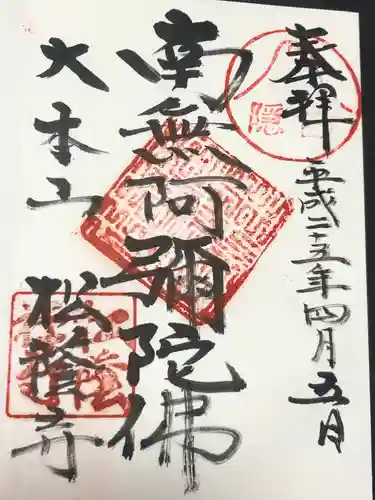 奉拝
平成二十五年四月五日
南無阿彌陀佛
大本山
松蔭寺